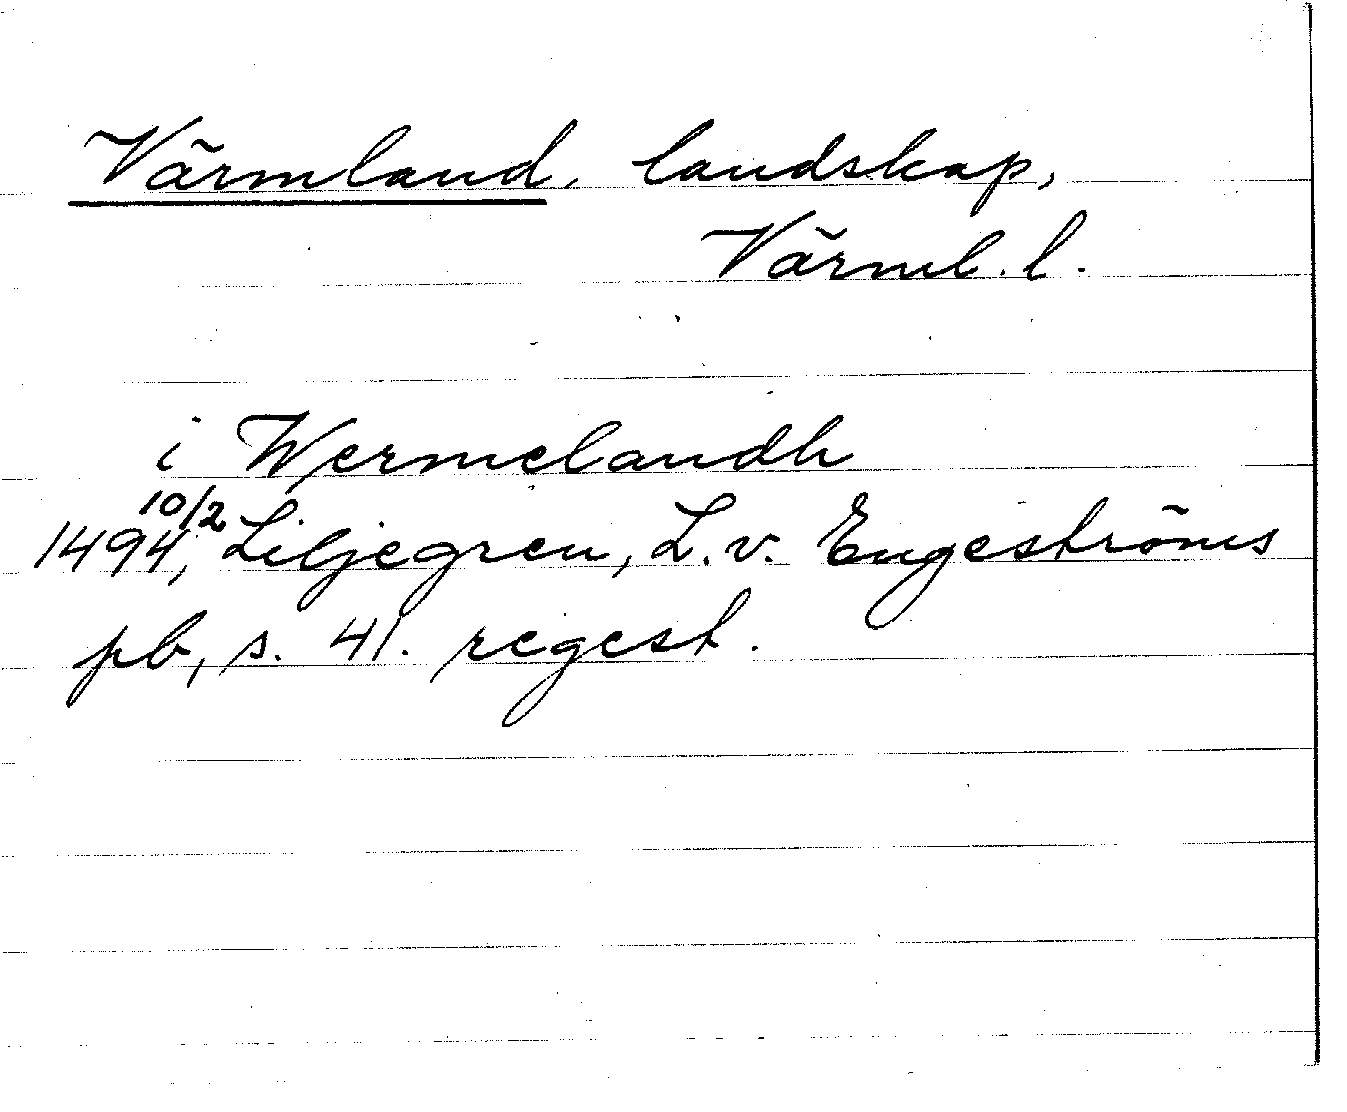 Värmland, landskap,
Värml. l.
i Wermelandh
1494 10/2, Liljegren, L. v. Engeströms
pb, s. 41. regest.